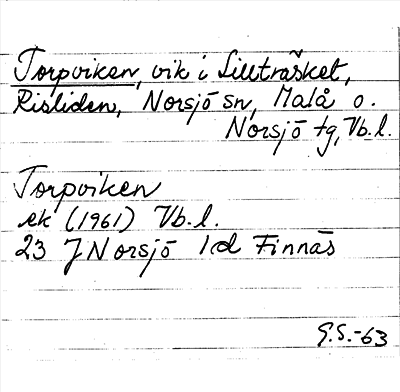 Torpviken, vik i Lillträsket,
Risliden, Norsjö sn, Malå o.
Norsjö tg, Vb. l.
Torpviken
ek (1961) Vb. l.
23 J Norsjö 1d Finnäs
G.S.-63